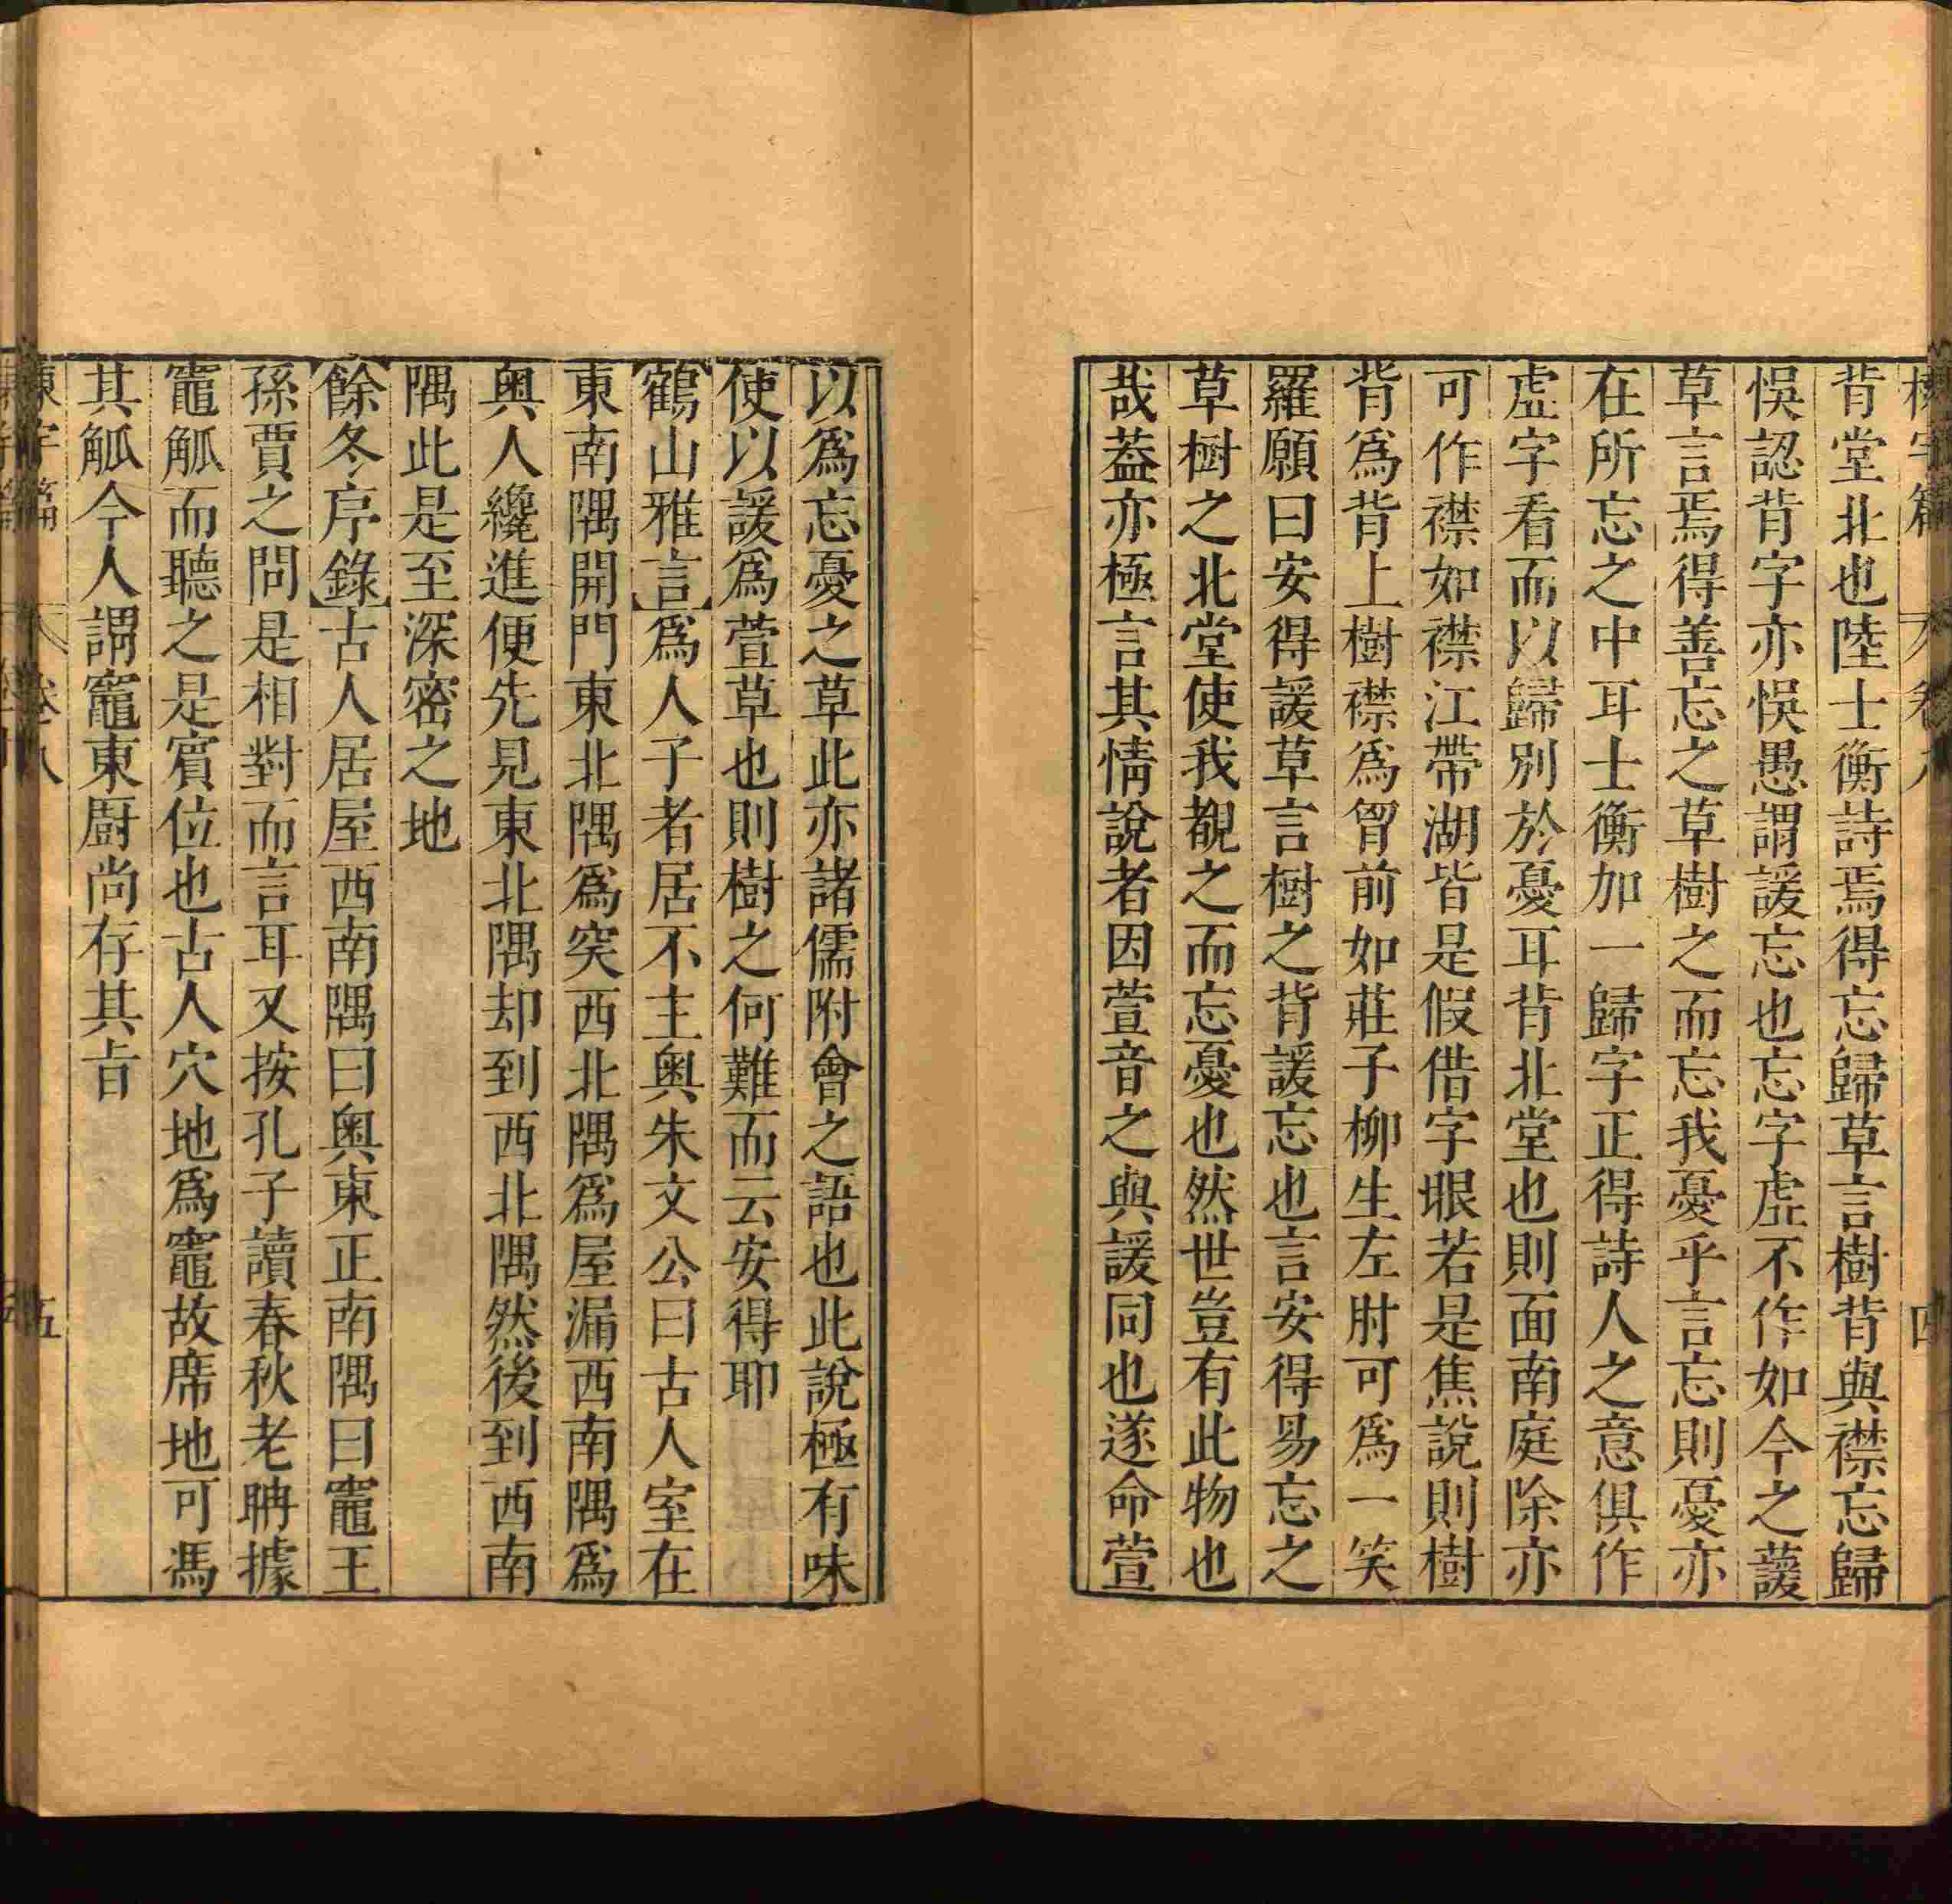 背堂北也陸士衡詩焉得忘歸草言樹背與襟忘歸
悞認背字亦悞愚謂諼忘也忘字虛不作如今之蘐
草言焉得善忘之草樹之而忘我憂乎言忘則憂亦
在所忘之中耳士衡加一歸字正得詩人之意俱作
虛字看而以歸別於憂耳背北堂也則面南庭除亦
可作襟如襟江帶湖皆是假借字眼若是焦說則樹
背爲背上樹襟爲胷前如莊子柳生左肘可爲一笑
羅願曰安得諼草言樹之背諼忘也言安得易忘之
草樹之北堂使我覩之而忘憂也然世豈有此物也
哉葢亦極言其情說者因萱音之與諼同也遂命萱
以爲忘憂之草此亦諸儒附會之語也此說極有味
使以諼爲萱草也則樹之何難而云安得耶
鶴山雅言爲人子者居不主奧朱文公曰古人室在
東南隅開門東北隅爲突西北隅爲屋漏西南隅爲
奧人纔進便先見東北隅却到西北隅然後到西南
隅此是至深密之地
餘冬序錄古人居屋西南隅曰奧東正南隅曰竈王
孫賈之問是相對而言耳又按孔子讀春秋老聃據
竈觚而聽之是賔位也古人穴地爲竈故席地可馮
其觚今人謂竈東廚尚存其㫖
卷八
五